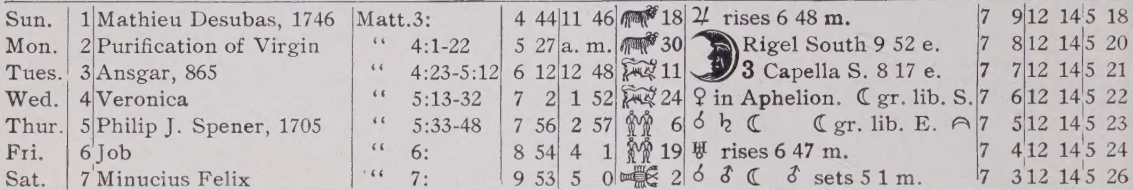 Sun. 1 Mathieu Desubas, 1746 Matt.3: 4 44 11 46 18 ♃ rises 6 48 m. 7 9 12 14 5 18
Mon. 2 Purification of Virgin “ 4:1-22 5 27 a. m. 30 Rigel South 9 52 e. 7 8 12 14 5 20
Tues. 3 Ansgar, 865 “ 4:23-5:12 6 12 12 48 11 3 Capella S. 8 17 e. 7 7 12 14 5 21
Wed. 4 Veronica “ 5:13-32 7 2 1 52 24 ♀ in Aphelion. ☾ gr. lib. S. 7 6 12 14 5 22
Thur. 5 Philip J. Spener, 1705 “ 5:33-48 7 56 2 57 6 ☌ ♄ ☾ ☾ gr. lib. E. 7 5 12 14 5 23
Fri. 6 Job “ 6: 8 54 4 1 19 ♅ rises 6 47 m. 7 4 12 14 5 24
Sat. 7 Minucius Felix “ 7: 9 53 5 0 2 ☌ ♂ ☾ ♂ sets 5 1 m. 7 3 12 14 5 26